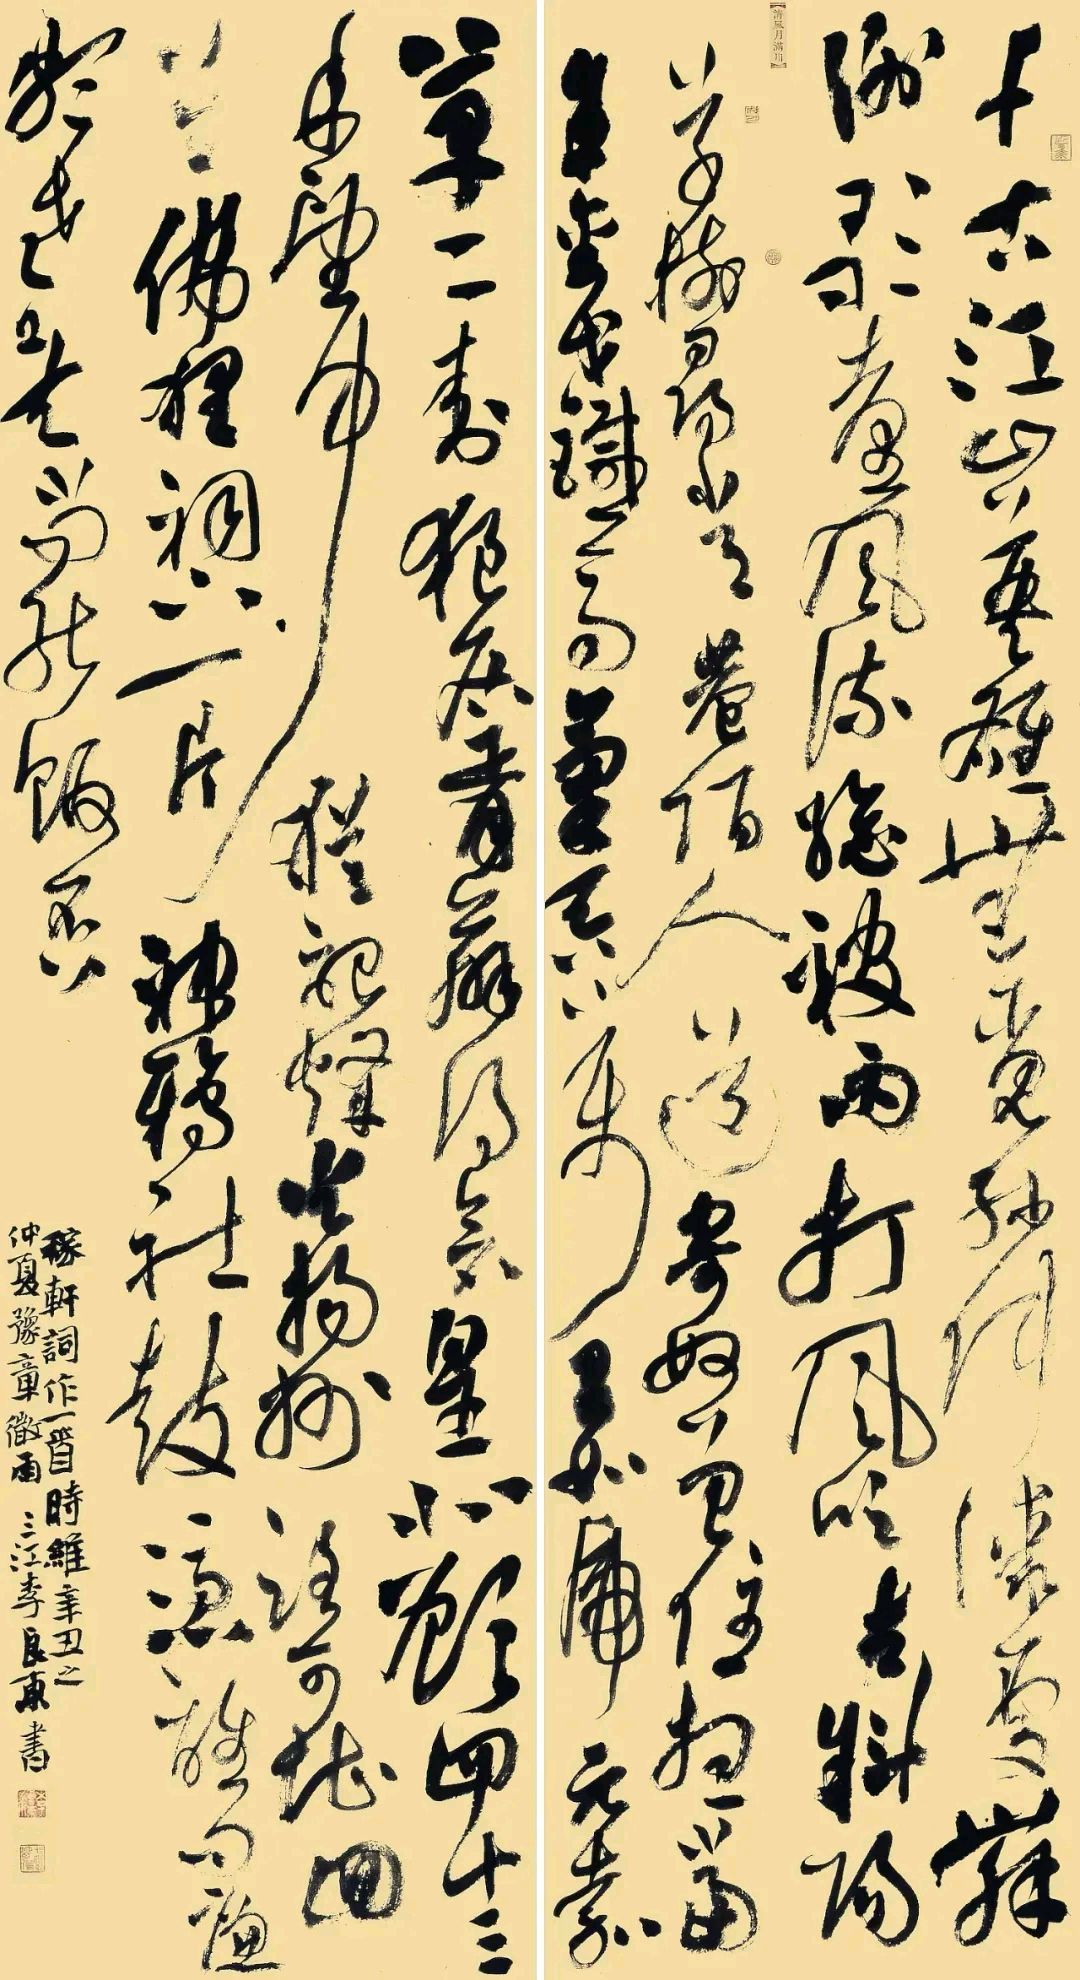 千古江山英雄無覓孫仲謀處舞
榭歌臺風流總被雨打風吹去斜陽
草樹尋常巷陌人道寄奴曾住想當
年金戈鐵馬氣吞萬里如虎元嘉
草二封狼居胥贏得倉皇北顧四十三
年望中猶記烽火揚州路可堪回
首佛狸祠下一片神鴉社鼓憑誰問廉
頗老矣尚能飯否
稼軒詞作一首時維辛丑之
仲夏豫章微雨三江李良東書